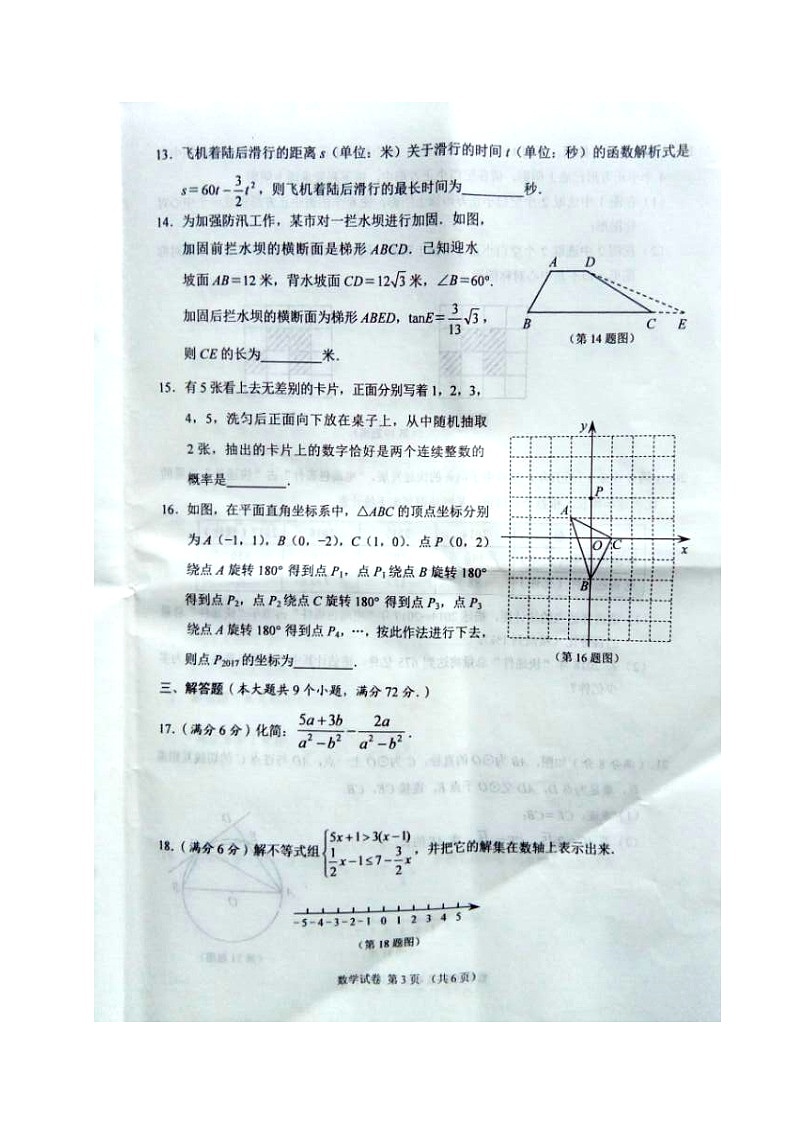 13. 飞机着陆后滑行的距离 s（单位：米）关于滑行的时间 t（单位：秒）的函数解析式是
s=60t-\frac{3}{2}t^2，则飞机着陆后滑行的最长时间为______秒.
14. 为加强防汛工作，某市对一拦水坝进行加固．如图，
加固前拦水坝的横断面是梯形 ABCD．已知迎水
坡面 AB=12 米，背水坡面 CD=12√3 米，∠B=60°.
加固后拦水坝的横断面为梯形 ABED，tanE=\frac{3}{13}√3，
则 CE 的长为______米.
A D
B C E
（第 14 题图）
15. 有 5 张看上去无差别的卡片，正面分别写着 1，2，3，
4，5，洗匀后正面向下放在桌子上，从中随机抽取
2 张，抽出的卡片上的数字恰好是两个连续整数的
概率是______.
16. 如图，在平面直角坐标系中，△ABC 的顶点坐标分别
为 A（-1，1），B（0，-2），C（1，0）．点 P（0，2）
绕点 A 旋转 180° 得到点 P₁，点 P₁ 绕点 B 旋转 180°
得到点 P₂，点 P₂ 绕点 C 旋转 180° 得到点 P₃，点 P₃
绕点 A 旋转 180° 得到点 P₄，…，按此作法进行下去，
则点 P₂₀₁₇ 的坐标为______.
y
P
A
O C
x
B
（第 16 题图）
三、解答题（本大题共 9 个小题，满分 72 分．）
17.（满分 6 分）化简：\frac{5a+3b}{a^2-b^2}-\frac{2a}{a^2-b^2}.
18.（满分 6 分）解不等式组 {5x+1>3(x-1) \frac{1}{2}x-1≤7-\frac{3}{2}x，并把它的解集在数轴上表示出来.
-5 -4 -3 -2 -1 0 1 2 3 4 5
（第 18 题图）
数学试卷 第 3 页 （共 6 页）